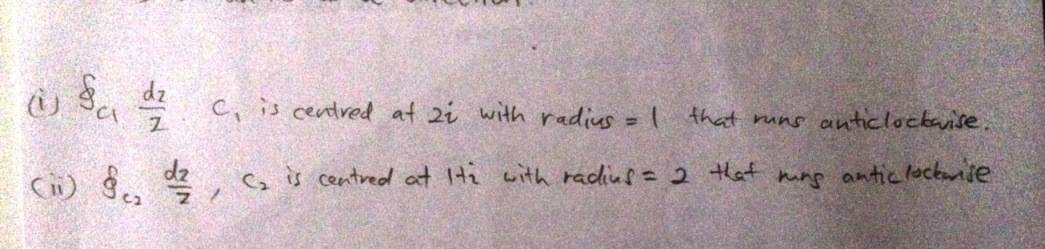 (i) ∮c₁ dz/z . C₁ is centred at 2i with radius = 1 that runs anticlockwise.
(ii) ∮c₂ dz/z , C₂ is centred at 1+i with radius = 2 that runs anticlockwise